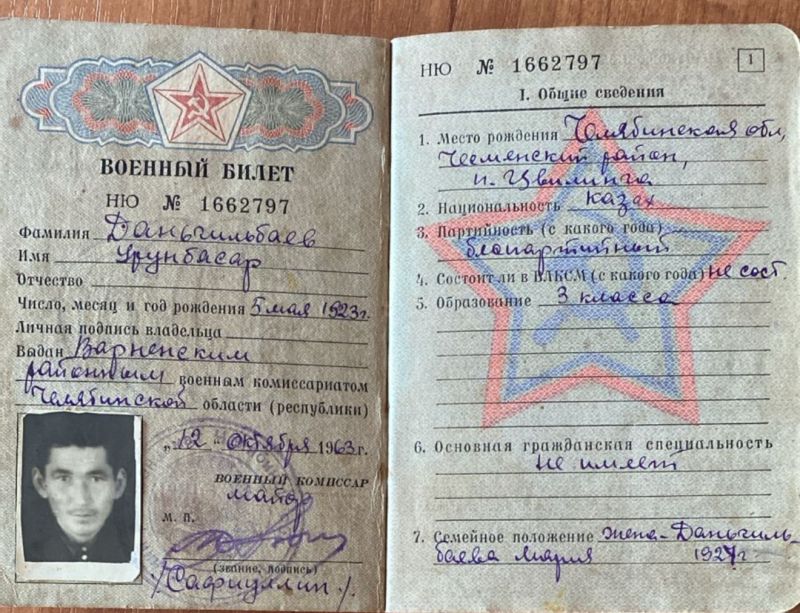 ВОЕННЫЙ БИЛЕТ
НЮ № 1662797
Фамилия Данъгильбаев
Имя Урунбасар
Отчество
Число, месяц и год рождения 5 мая 1923 г.
Личная подпись владельца
Выдан Варненским
районным военным комиссариатом
Челябинской области (республики)
„12“ октября 1963 г.
ВОЕННЫЙ КОМИССАР
майор
М. П.
(звание, подпись)
/Сафиуллин/.
НЮ № 1662797
1
I. Общие сведения
1. Место рождения Челябинская обл,
Чесменский район,
п. Цвилинга
2. Национальность казах
3. Партийность (с какого года)
безпартийный
4. Состоит ли в ВЛКСМ (с какого года) не сост.
5. Образование 3 класса
6. Основная гражданская специальность
не имеет
7. Семейное положение жена - Данъгиль-
баева Мария 1927 г.